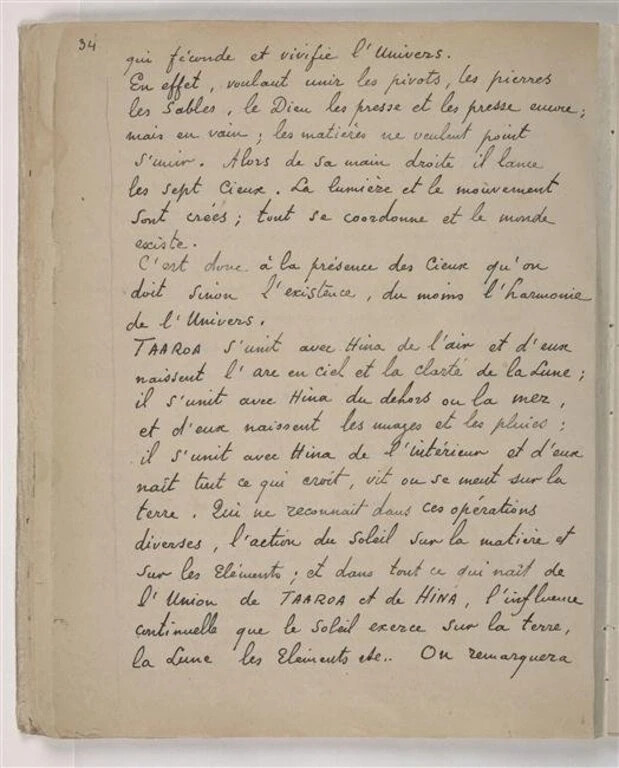 34
qui féconde et vivifie l'Univers.
En effet, voulant unir les pivots, les pierres
les Sables, le Dieu les presse et les presse encore;
mais en vain; les matières ne veulent point
s'unir. Alors de sa main droite il lance
les sept Cieux. La lumière et le mouvement
sont créés; tout se coordonne et le monde
existe.
C'est donc à la présence des Cieux qu'on
doit sinon l'existence, du moins l'harmonie
de l'Univers.
TAAROA s'unit avec Hina de l'air et d'eux
naissent l'arc en ciel et la clarté de la Lune;
il s'unit avec Hina du dehors ou la mer,
et d'eux naissent les nuages et les pluies;
il s'unit avec Hina de l'intérieur et d'eux
naît tout ce qui croit, vit ou se meut sur la
terre. Qui ne reconnait dans ces opérations
diverses, l'action du Soleil sur la matière et
sur les Eléments; et dans tout ce qui naît de
l'Union de TAAROA et de HINA, l'influence
continuelle que le Soleil exerce sur la terre,
la Lune les Eléments etc.. On remarquera